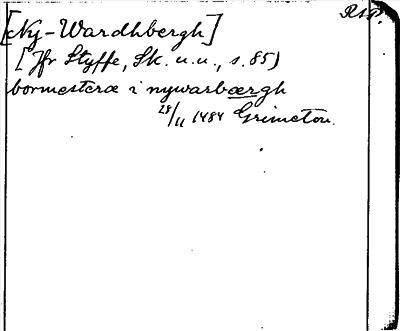 RAP.
[Ny-Wardhbergh]
[Jfr Styffe, Sk. u.u., s. 85)
bormesteræ i nywarbærgh
28/11 1484 Grimeton.